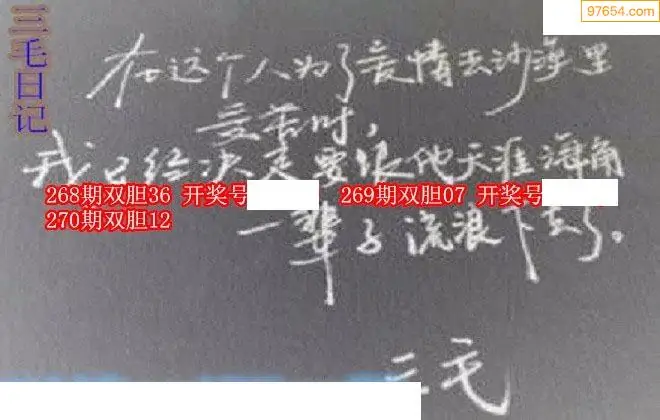 三毛日记
97654.com
在这个人为了爱情去沙漠里
受苦时,
我已经决定要跟他天涯海角
268期双胆36 开奖号 269期双胆07 开奖号
270期双胆12
一辈子流浪下去了。
三毛